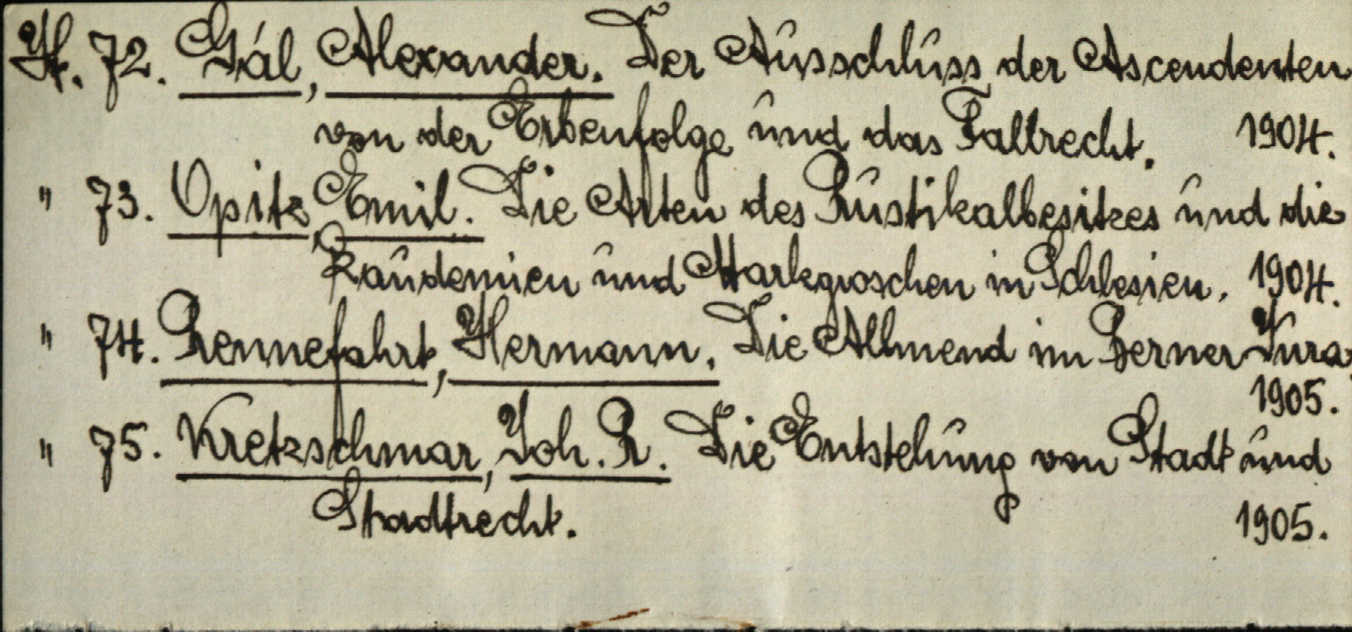 Hf. 72. Gál, Alexander. Der Ausschluss der Ascendenten
von der Erbenfolge und das Fallrecht. 1904.
" 73. Opitz, Emil. Die Arten des Rustikalbesitzes und die
Laudemien und Markgroschen in Schlesien. 1904.
" 74. Rennefahrt, Hermann. Die Allmend im Berner Jura.
1905.
" 75. Kretzschmar, Joh. R. Die Entstehung von Stadt und
Stadtrecht. 1905.